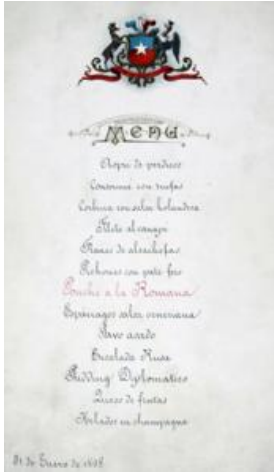 MENU
Aspic de perdices
Consomé con trufas
Corbina con salsa holandesa
Filete al canape
de alcachofas
Pichones con paté
Ponche a la Romana
Espárragos salsa veneciana
Pavo asado
Ensalada Rusa
Pudding Diplomático
Queso de frutas
Helados en champagne
31 de Enero de